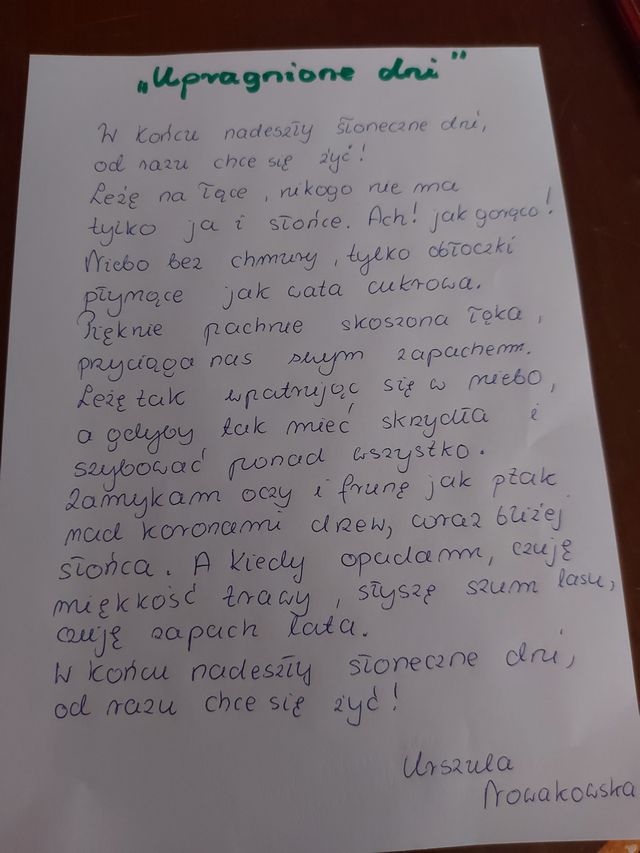 „Upragnione dni"
W końcu nadeszły słoneczne dni,
od razu chce się żyć!
Leżę na łące, nikogo nie ma
tylko ja i słońce. Ach! jak gorąco!
Niebo bez chmury, tylko obłoczki
płynące jak wata cukrowa.
Pięknie pachnie skoszona łąka,
przyciąga nas swym zapachem.
Leżę tak wpatrując się w niebo,
a gdyby tak mieć skrzydła i
szybować ponad wszystko.
Zamykam oczy i frunę jak ptak
nad koronami drzew, coraz bliżej
słońca. A kiedy opadam, czuję
miękkość trawy, słyszę szum lasu,
czuję zapach lata.
W końcu nadeszły słoneczne dni,
od razu chce się żyć!
Urszula
Nowakowska